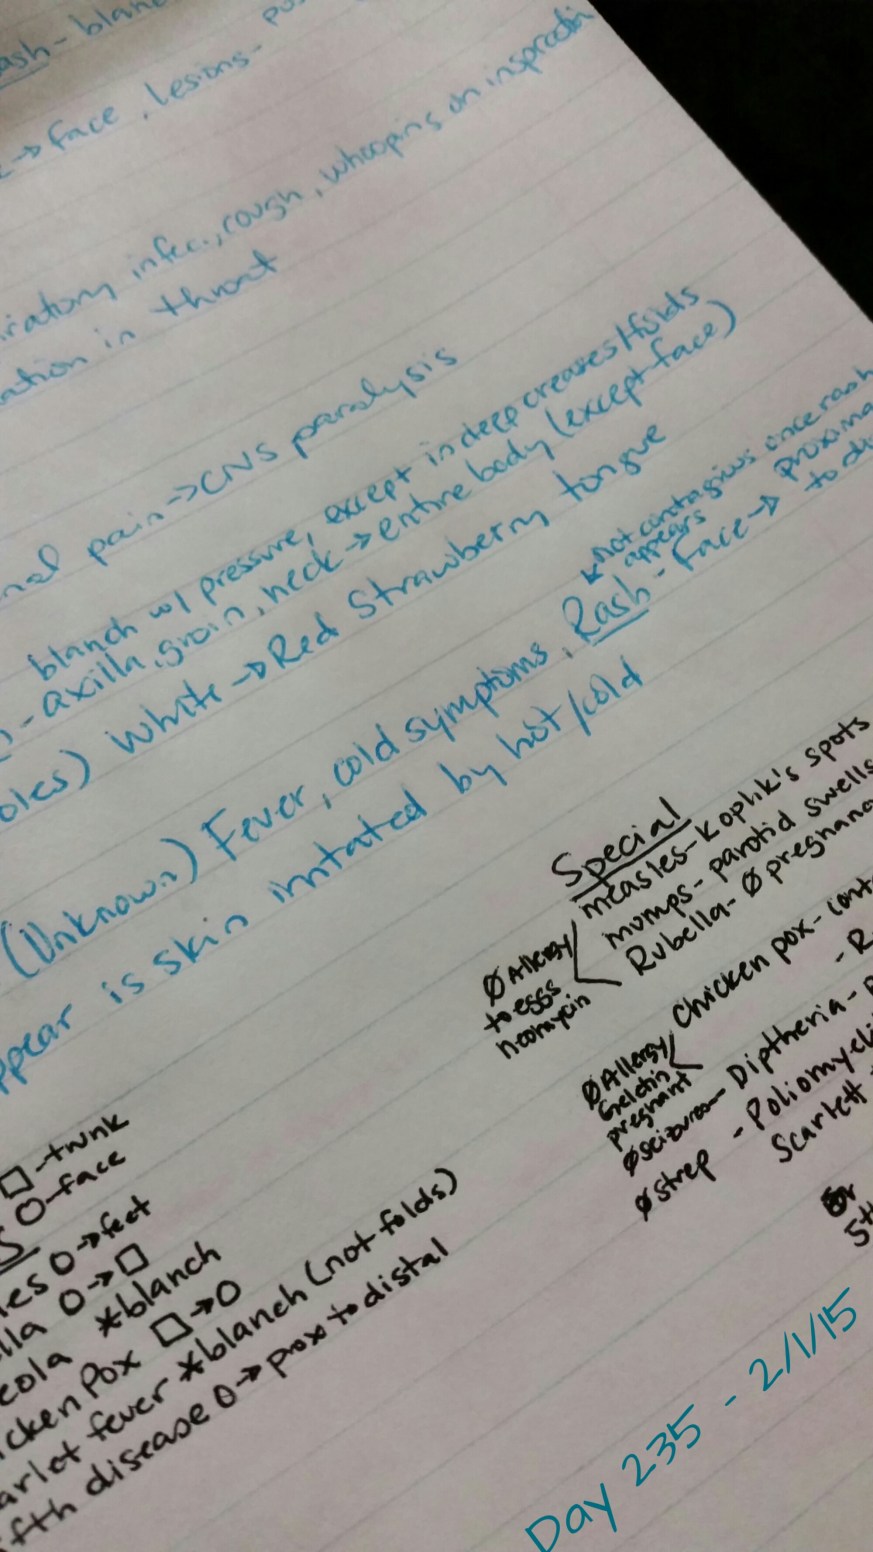 ash - blanc
→ face, lesions - pus
iratory infec., cough, whooping on inspiration
ation in throat
nal pain → CNS paralysis
blanch w/ pressure, except in deep creases/folds
- axilla, groin, neck → entire body (except face)
oles) White → Red Strawberry tongue
not contagious once rash
appears
(Unknown) Fever, cold symptoms, Rash - Face → proxima
to di
ppear is skin irritated by hot/cold
Special
measles - Koplik's spots
mumps - parotid swells
Rubella - Ø pregnanc
Ø Allergy
to eggs
neomycin
Chicken pox - cont
- R
Ø Allergy
Gelatin
pregnant
Ø seizures - Diptheria - p
Ø strep - Poliomyeli
Scarlett
5th
□ - trunk
S O - face
les O → feet
lla O → □
eola *blanch
icken Pox □ → O
arlet fever *blanch (not folds)
ifth disease O → prox to distal
Day 235 - 2/1/15